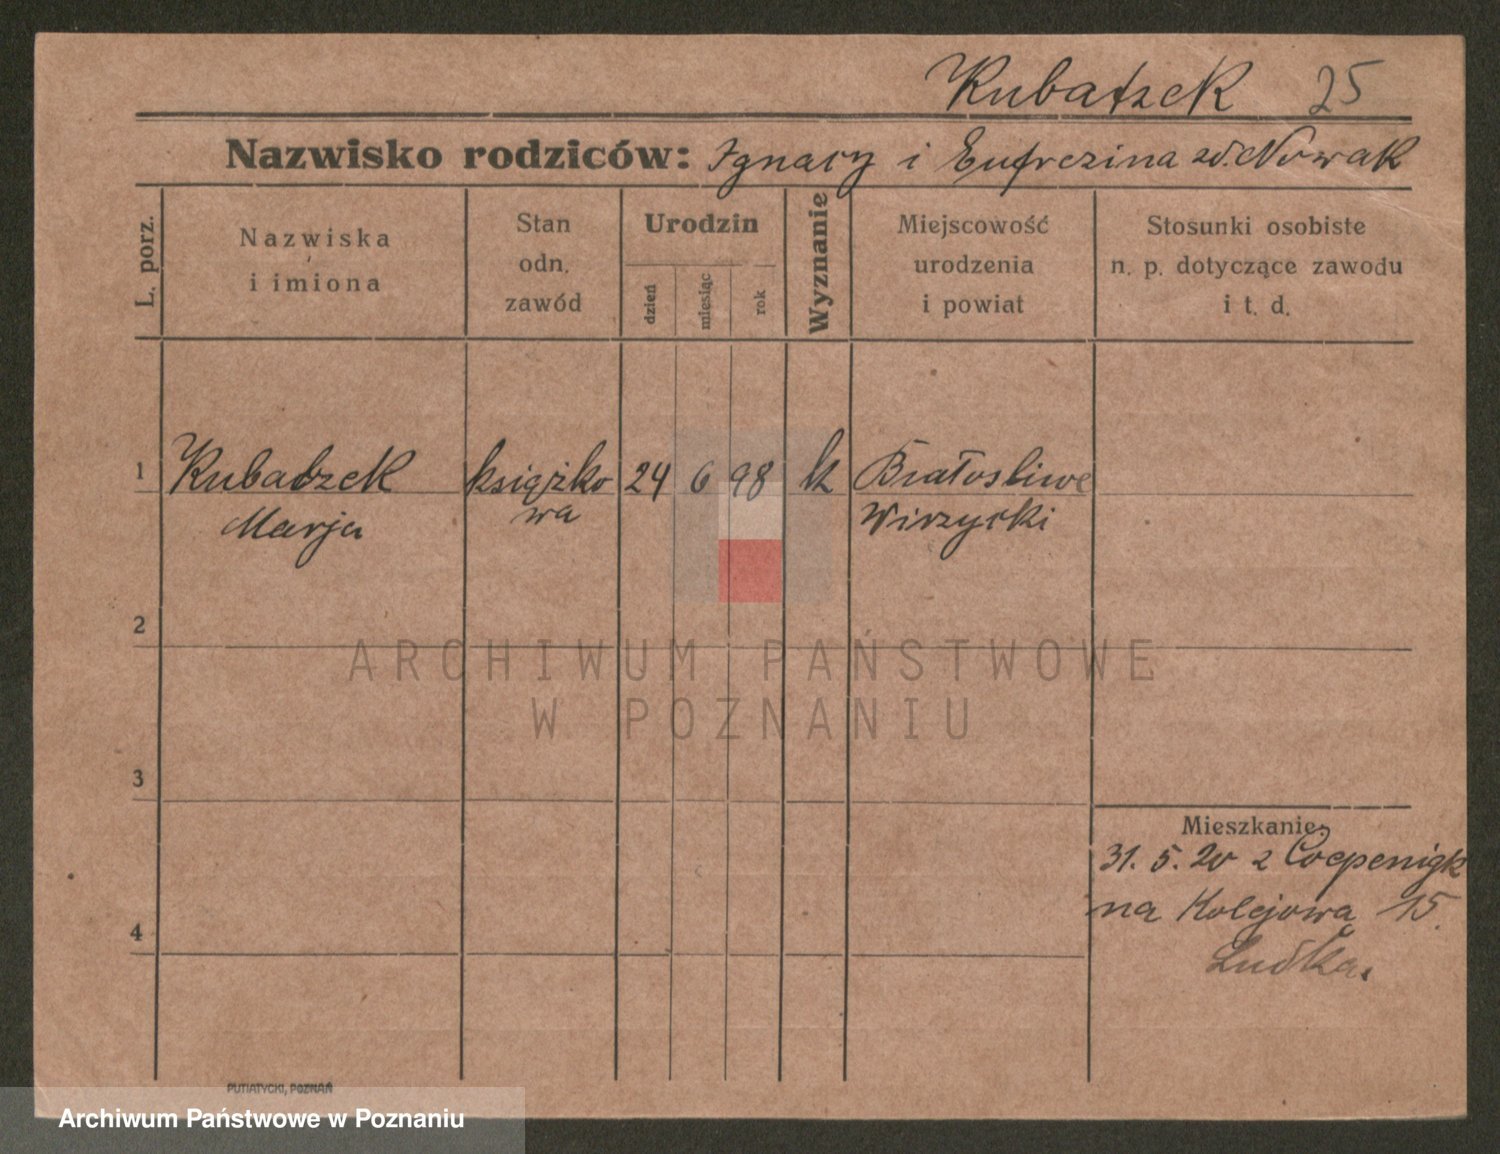 Kubatzek 25
Nazwisko rodziców: Ignacy i Eufrezina zd. Nowak
L. porz.
Nazwiska
i imiona
Stan
odn.
zawód
Urodzin
dzień
miesiąc
rok
Wyznanie
Miejscowość
urodzenia
i powiat
Stosunki osobiste
n. p. dotyczące zawodu
i t. d.
1 Kubatzek książko 24 6 98 k Białosliwe
Marja wa Wirzycki
2
ARCHIWUM PAŃSTWOWE
W POZNANIU
3
Mieszkanie:
31. 5. 20 z Coepenigk
na Kolejową 15.
4
PUTIATYCKI, POZNAŃ
Archiwum Państwowe w Poznaniu